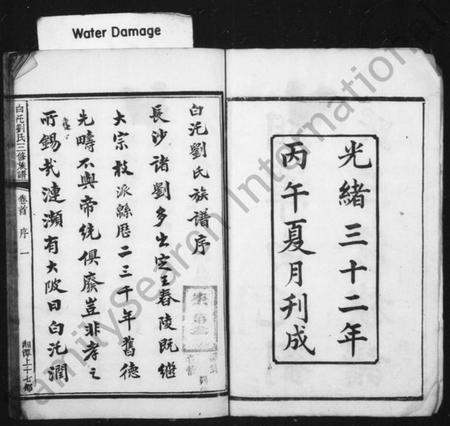 Water Damage
光緒三十二年
丙午夏月刊成
白沱劉氏族譜序
長沙諸劉多出定王舂陵既繼
大宗枝派緜歷二三千年舊德
先疇不與帝統俱廢豈非孝之
所錫哉漣瀕有大陂曰白沱澗
白沱劉氏三修族譜
卷首
序
一
湘潭上十七都
FamilySearch International